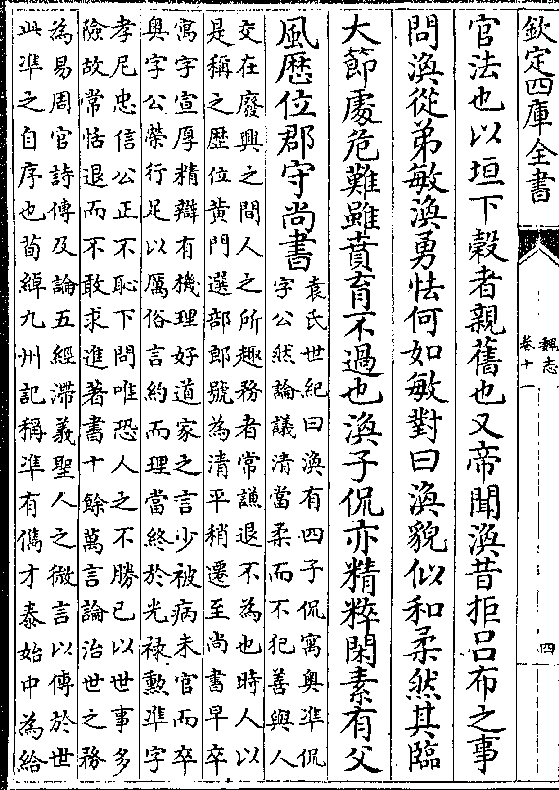 欽定四庫全書
魏志
卷十一
四
官法也以垣下穀者親舊也又帝聞渙昔拒呂布之事
問渙從弟敏渙勇怯何如敏對曰渙貌似和柔然其臨
大節處危難雖賁育不過也渙子侃亦精粹閑素有父
風歴位郡守尚書
袁氏世紀曰渙有四子侃㝢奥凖侃
字公然論議清當柔而不犯善與人
交在廢興之間人之所趣務者常謙退不為也時人以
是稱之歴位黄門選部郎號為清平稍遷至尚書早卒
㝢字宣厚精辯有機理好道家之言少被病未官而卒
奥字公榮行足以厲俗言約而理當終於光禄勲凖字
孝尼忠信公正不恥下問唯恐人之不勝已以世事多
險故常恬退而不敢求進著書十餘萬言論治世之務
為易周官詩傳及論五經滯義聖人之微言以傳於世
此凖之自序也荀綽九州記稱凖有儁才泰始中為給